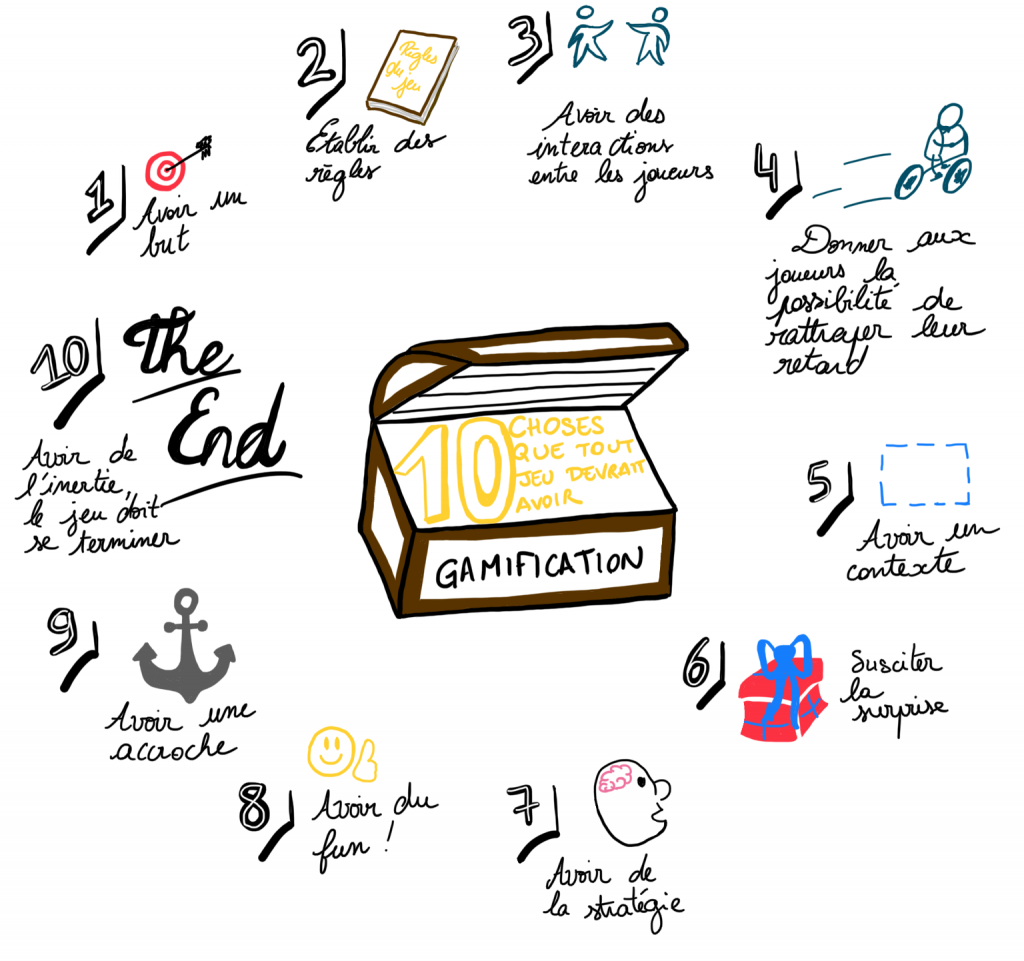 10
CHOSES
QUE TOUT
JEU DEVRAIT
AVOIR
GAMIFICATION
1
Avoir un
but
2
Règles
du
jeu
Etablir des
règles
3
Avoir des
interactions
entre les joueurs
4
Donner aux
joueurs la
possibilité de
rattraper leur
retard
5
Avoir un
contexte
6
Susciter
la
surprise
7
Avoir de
la stratégie
8
Avoir du
fun !
9
Avoir une
accroche
10
The
End
Avoir de
l'inertie,
le jeu doit
se terminer